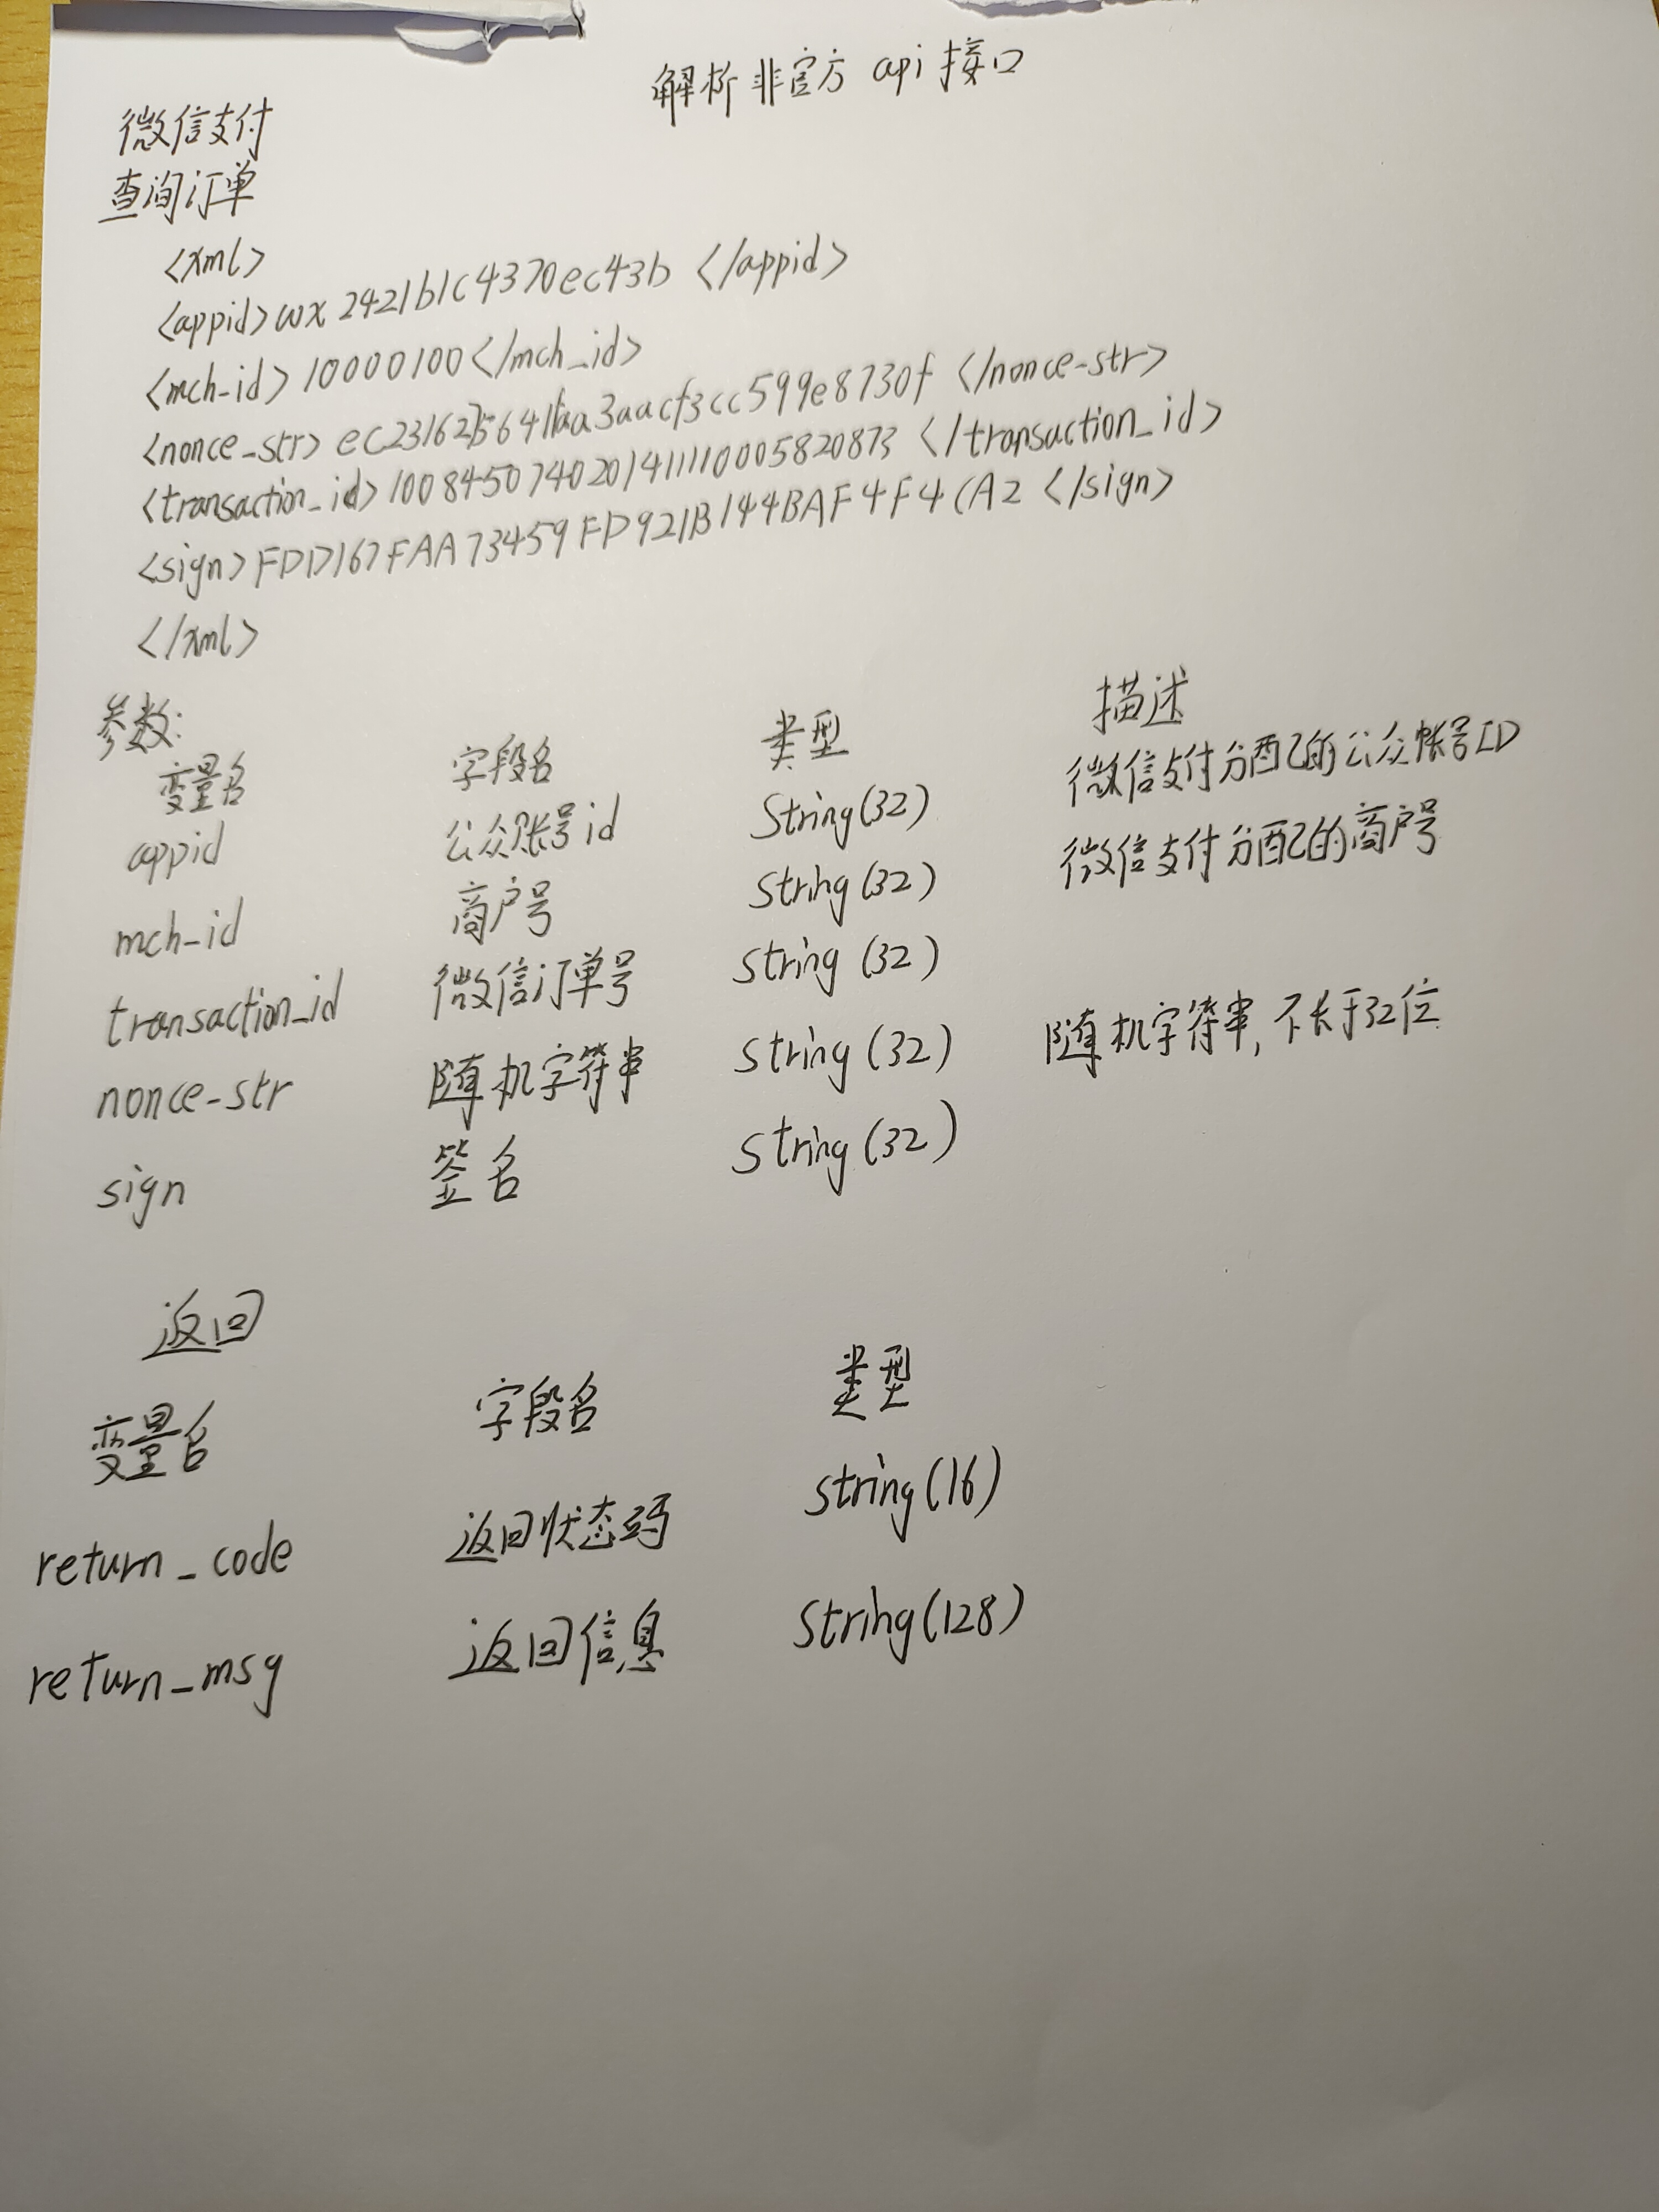 解析非官方 api接口
微信支付
查询订单
<xml>
<appid>wx2421b1c4370ec43b </appid>
<mch-id>10000100</mch_id>
<nonce-str> ec2316275641faa3aacf3cc599e8730f </nonce-str>
<transaction_id>1008450740201411110005820873 </transaction_id>
<sign>FDD167FAA73459FD921B144BAF4F4CA2 </sign>
</xml>
参数:
变量名 字段名 类型 描述
appid 公众账号id String(32) 微信支付分配的公众帐号ID
mch-id 商户号 String(32) 微信支付分配的商户号
transaction_id 微信订单号 String (32)
nonce-str 随机字符串 String (32) 随机字符串,不长于32位
sign 签名 String (32)
返回
变量名 字段名 类型
return_code 返回状态码 String(16)
return_msg 返回信息 String(128)